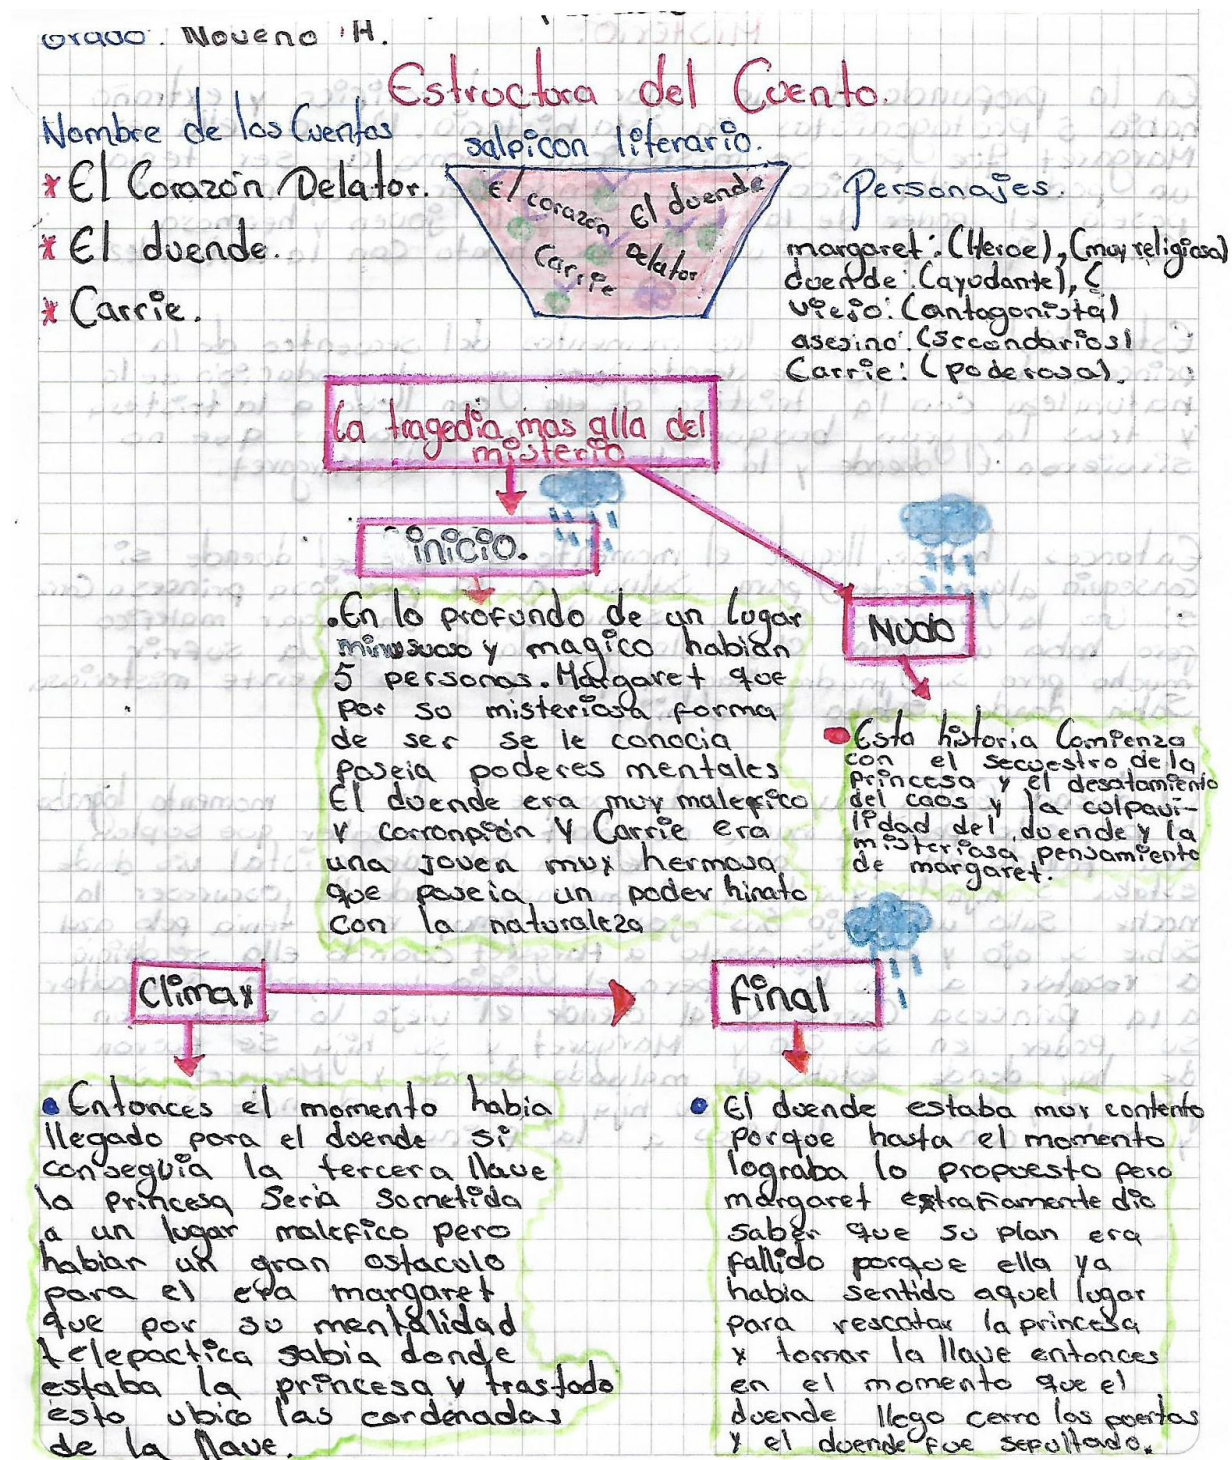 Grado: Noveno H.
Estructura del Cuento.
Nombre de los Cuentos
* El Corazón Delator.
* El duende.
* Carrie.
salpicon literario.
El corazón
El duende
Carrie
Delator
Personajes.
margaret: (Heroe), (muy religiosa)
duende: (ayudante), (
viejo: (antagonista)
asesino: (Secundarios)
Carrie: (poderosa).
La tragedia mas alla del
misterio
inicio.
.En lo profundo de un lugar
y magico habian
5 personas. Margaret que
por su misteriosa forma
de ser se le conocia
poseia poderes mentales
El duende era muy malefico
y corronpión y Carrie era
una joven muy hermosa
que poseia un poder hinato
con la naturaleza
Nudo
Esta historia Comienza
con el secuestro de la
princesa y el desatamiento
del caos y la colpavi-
lidad del duende y la
misteriosa pensamiento
de margaret.
Climax
Entonces el momento habia
llegado para el duende si
conseguia la tercera llave
la princesa Seria Sometida
a un lugar malefico pero
habian un gran ostaculo
para el era margaret
que por su mentalidad
telepactica sabia donde
estaba la princesa y trastado
esto ubico las cordenadas
de la llave.
final
El duende estaba muy contento
porque hasta el momento
lograba lo propuesto pero
margaret extrañamente dio
saber que su plan era
fallido porque ella ya
habia sentido aquel lugar
para rescatar la princesa
y tomar la llave entonces
en el momento que el
duende llego cerro las puertas
y el duende fue sepultado.